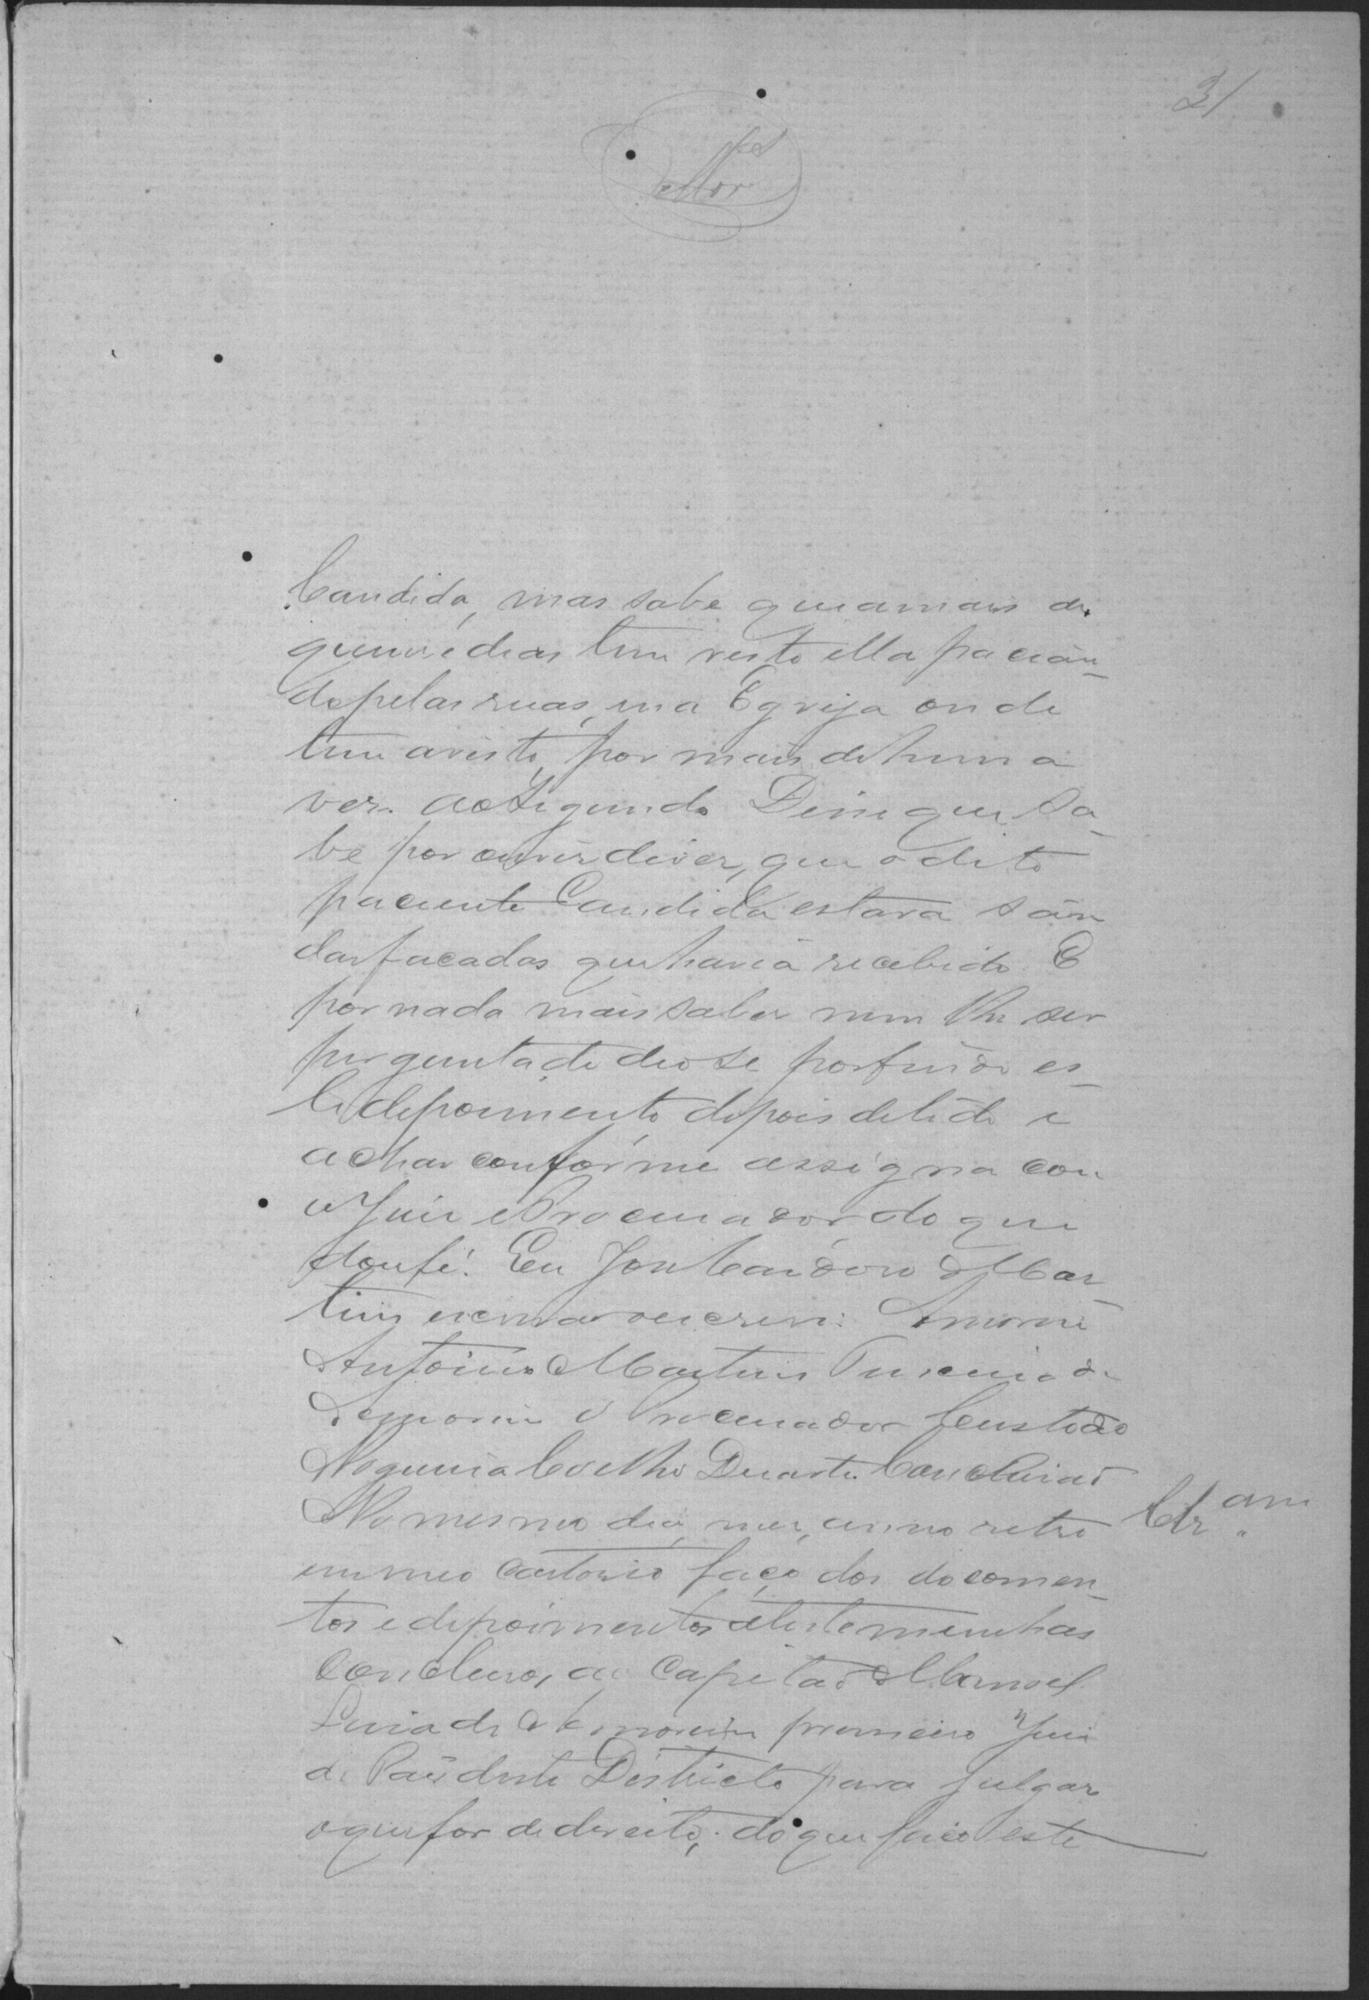 31
Candida, mas sabe que a mais de
quinze dias tem visto ella passian-
do pelas ruas, e na Egreja onde
tem avisto, por mais de huma
vez. Ao Segundo Disse que sa-
be por ouvir dizer, que o dito
paciente Candida estava sam
das facadas que havia recebido. E
por nada mais saber nem lhe ser
perguntado deo se por findo es-
te depoimento depois de lido e
achar conforme assigna com
o Juiz e Procurador do que
dou fé. Eu José Cardoso de Mar-
tins escrivão escrevi.
Antonio Martins
o Procurador Custodio
Nogueira Coelho Duarte Conclusão
No mesmo dia, mez, anno retro
em meo cartorio faço dos documen-
tos e depoimentos de testemunhas
concluso, ao Capitão Manoel
primeiro Juiz
de Paz deste Districto para julgar
o que for de direito, do que faço este